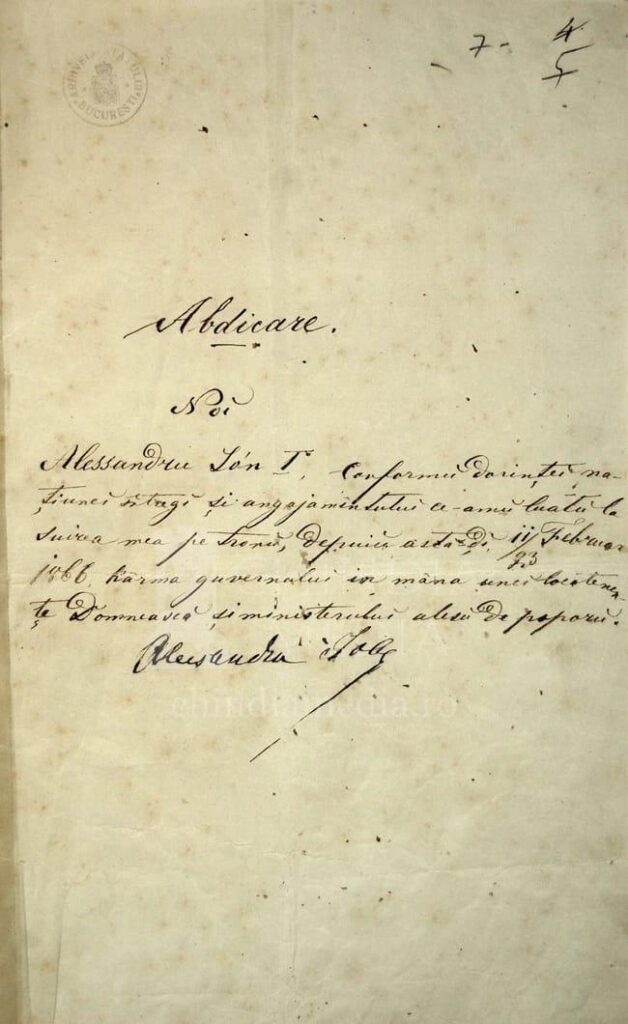 7 - 4
5
BUCURESTI
Abdicare.
Noi
Alessandru Ión I, Conformŭ dorinței na-
țiunei întregi și angajamîntului ce-amŭ luatŭ la
suirea mea pe tronŭ, depuiŭ astă-ḑi 11/23 Februar
1866 kârma guvernului in mâna unei locotenen-
țe Domnească și ministerului alesŭ de poporŭ.
Alecsandru Ioan